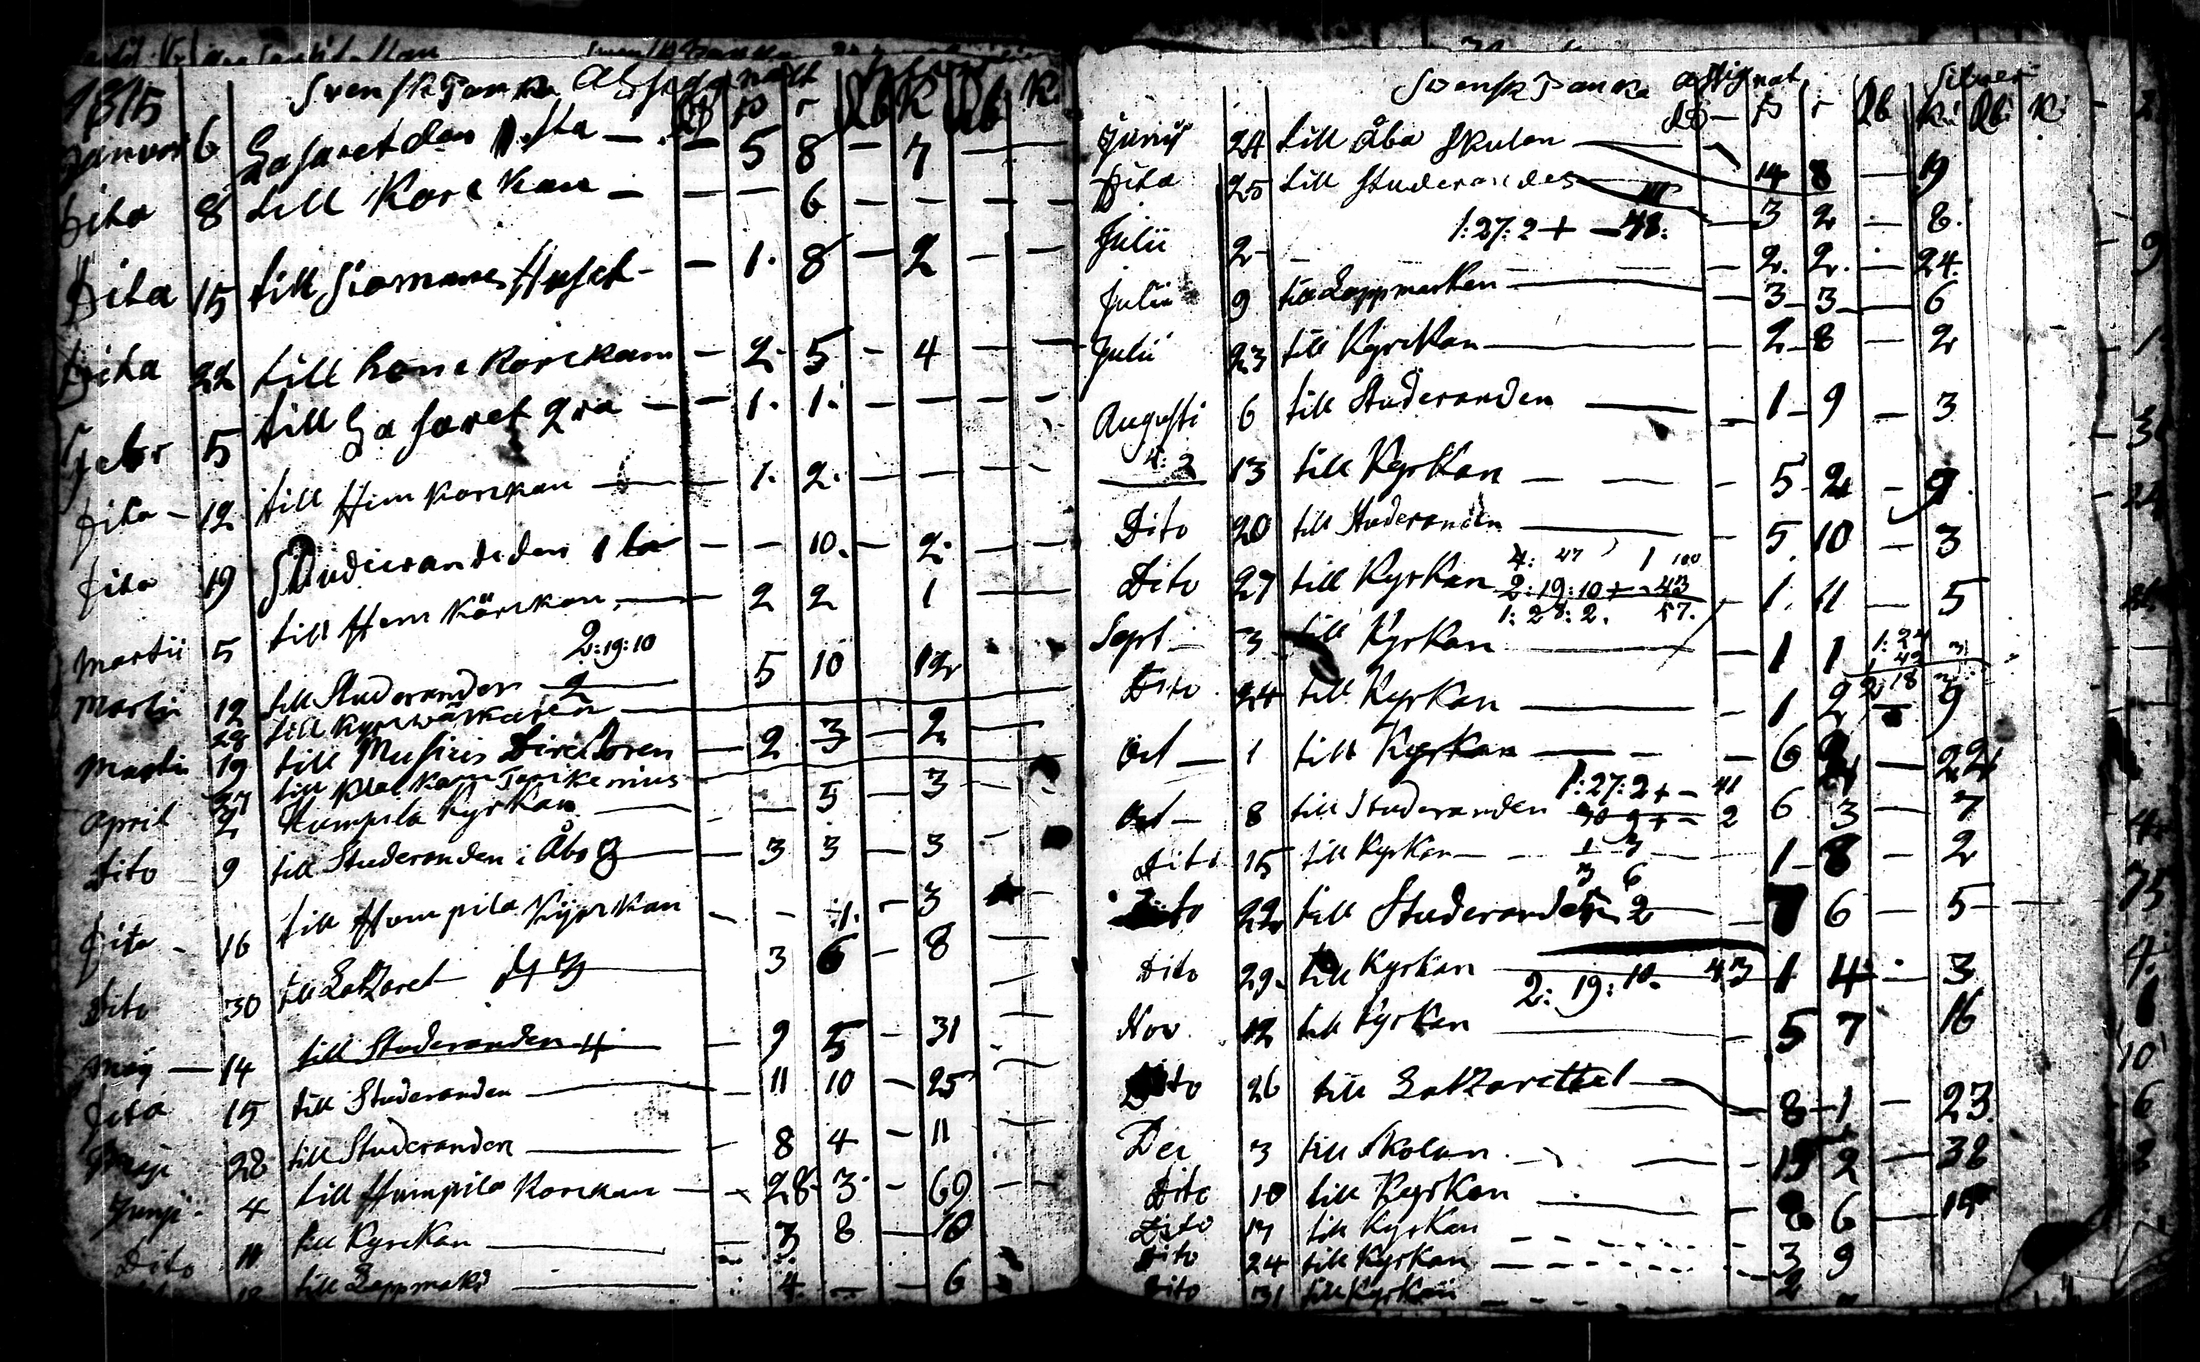 1815 Svensk Banko Assignatt
Rd ß r Rb K Rb K
Januari 6 Lasaretden 1sta — — 5 8 — 7 —
Dito 8 till Korckan — — — 6 — — — —
Dito 15 till Siomans Huset — — 1. 8 — 2 — —
Dito 22 till hona Korckam — 2. 5 — 4 — —
Febr 5 till Lasaret 2ra — — 1. 1. — — — —
Dito — 12 till Hem Korckan — — 1. 2. — — —
Dito 19 Studierandeden 1 — — 10. — 2. —
Martii 5 till Hem Körckan, — 2 2 1 —
2:19:10
Martii 12 till Studeranden 2 — 5 10 12
28 till
Martii 19 till Musicis Directoren — 2 3 — 2 —
27 till
April 2 Humpila Kyrkan — — 5 — 3 —
Dito 9 till Studeranden i Åbo 3 — 3 3 — 3 —
Dito — 16 till Humpila Kyrkan — — 1. — 3 —
Dito 30 till Latzaret 3 — 3 6 — 8 —
May — 14 till Studeranden 4 — 9 5 — 31 —
Dito 15 till Studeranden — 11 10 — 25
Maji 28 till Studeranden — 8 4 — 11 —
Junji 4 till Humpila Korckan — 28. 3. — 69 —
Dito 11 till Kyrckan — 3 8 — 10
till Lappmak — 4. — — 6 —
Svensk Banko Assignat, Silver
Rd — ß r Rb K: Rb: K:
Junij 24 till Åbo Skulan — 14 8 — 19
Dito 25 till Studerandes — 3 2 — 8.
1:27:2 + — 48.
Julii 2 - - — 2. 2. — 24.
Julii 9 till Lappmarken — 3 — 3 — 6
Julii 23 till Kyrckan — 2 — 8 — 2
Augusti 6 till Studeranden — 1 — 9 — 3
13 till Kyrkan — — 5 — 2 — 9
Dito 20 till Studeranden — 5. 10 — 3
4: 47 1 100
Dito 27 till Kyrkan 2:19:10 + — 43 — 1. 11 — 5
1: 28: 2. 57.
Sept — 3 till Kyrkan — 1 1
Dito 24 till Kyrkan — 1 2 — 9
Oct — 1 till Kyrkan — — 6 2 — 22
1:27:2 + — 41
Oct — 8 till Studeranden — 2 6 3 — 7
Dito 15 till Kyrkan — — 1 — 8 — 2
3 6
Dito 22 till Studeranden 2 — 7 6 — 5 —
Dito 29. till Kyrkan — 43 1 4 — 3
2: 19: 10.
Nov 12 till Kyrkan — 5 7 16
Dito 26 till Latzarettet — 8 — 1 — 23
Dec 3 till Skolan. — — 15 2 — 38
Dito 10 till Kyrkan — 8 6 — 15
Dito 17 till Kyrkan — — — —
Dito 24 till Kyrkan — — — — 3 9
Dito 31 till Kyrkan — — 2